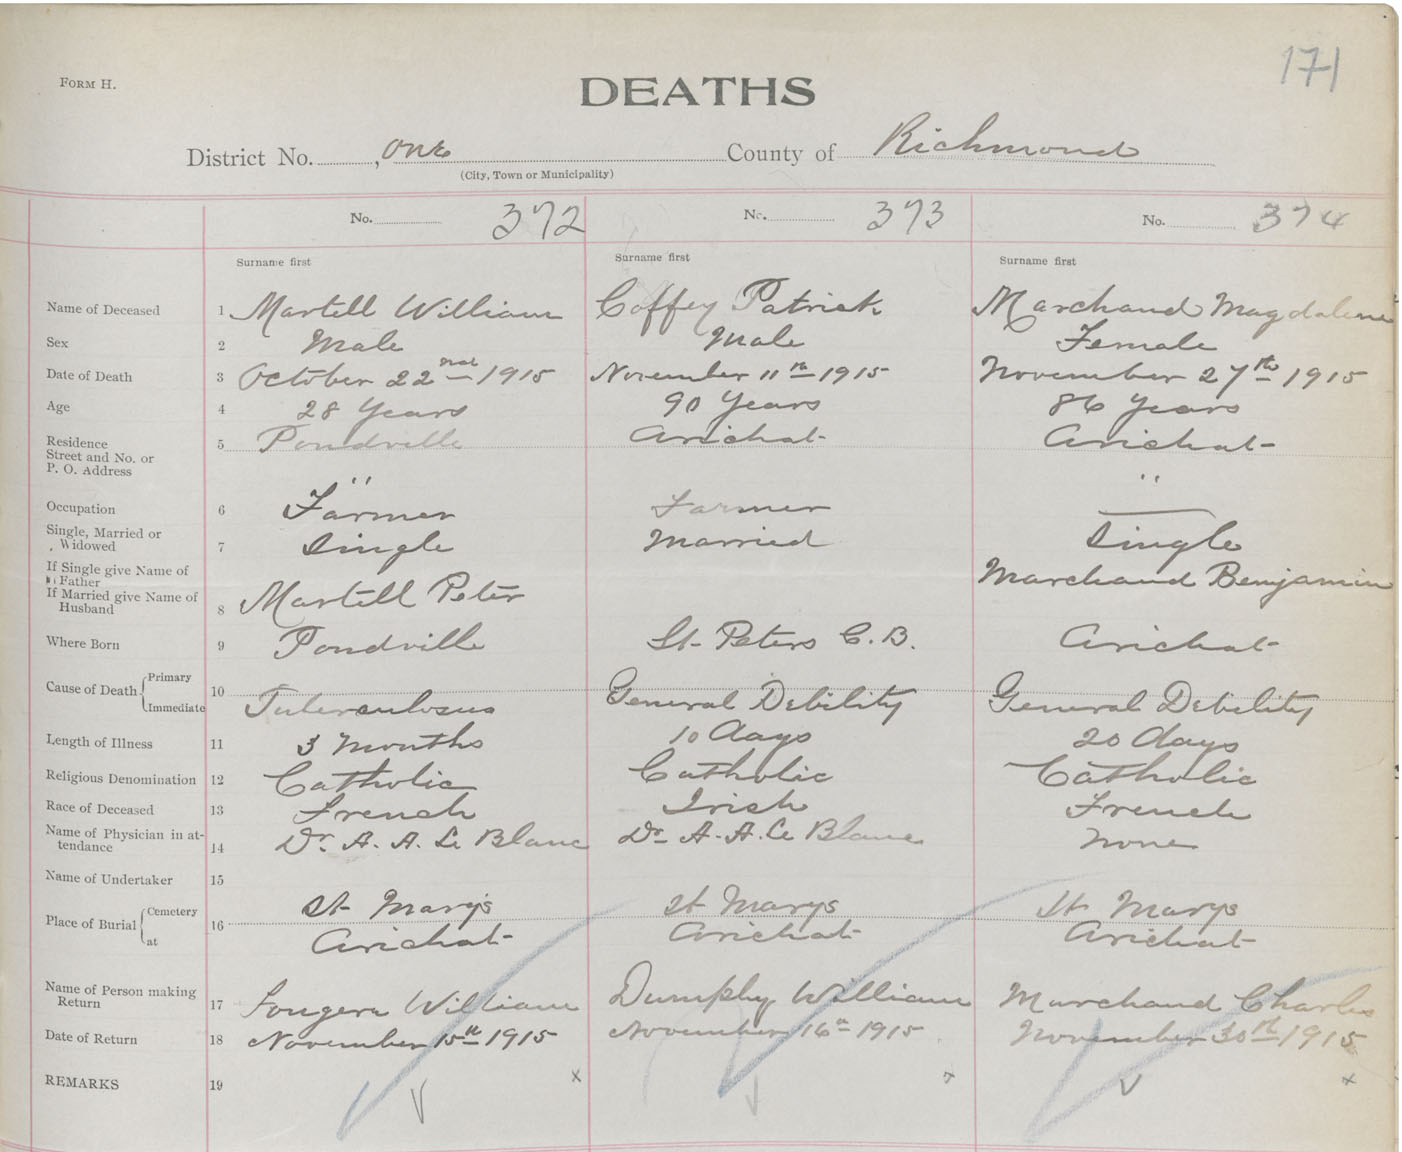 171
FORM H.
DEATHS
District No. , one County of Richmond
(City, Town or Municipality)
No. 372 No. 373 No. 374
Surname first Surname first Surname first
Name of Deceased 1 Martell William Coffey Patrick Marchand Magdalene
Sex 2 Male Male Female
Date of Death 3 October 22nd 1915 November 11th 1915 November 27th 1915
Age 4 28 Years 90 Years 86 Years
Residence 5 Pondville Arichat Arichat
Street and No. or
P. O. Address " "
Occupation 6 Farmer Farmer —
Single, Married or
Widowed 7 Single Married Single
If Single give Name of
Father Marchand Benjamin
If Married give Name of
Husband 8 Martell Peter
Where Born 9 Pondville St. Peters C. B. Arichat
Cause of Death { Primary
Immediate 10 Tuberculosus General Debility General Debility
Length of Illness 11 3 Months 10 days 20 days
Religious Denomination 12 Catholic Catholic Catholic
Race of Deceased 13 French Irish French
Name of Physician in at-
tendance 14 Dr. A. A. Le Blanc Dr. A. A. Le Blanc None
Name of Undertaker 15
Place of Burial { Cemetery St Mary's St Marys St Marys
at 16 Arichat Arichat Arichat
Name of Person making
Return 17 Fougere William Dumphy William Marchand Charles
Date of Return 18 November 15th 1915 November 16th 1915 November 30th 1915
REMARKS 19 x x x